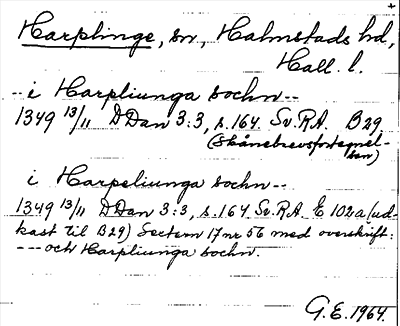 +
Harplinge, sn, Halmstads hd,
Hall. l.
-- i Harpliunga sochn --
1349 13/11 DDan 3:3, s. 164. Sv.R.A. B29
(Skånebrevsfortegnel-
sen)
i Harpeliunga sochn --
1349 13/11 DDan 3:3, s. 164 Sv.R.A. E 102a (ud-
kast til B29) Sectern 17 nr 56 med overskrift:
--- och Harpliunga sochn.
G.E. 1964.